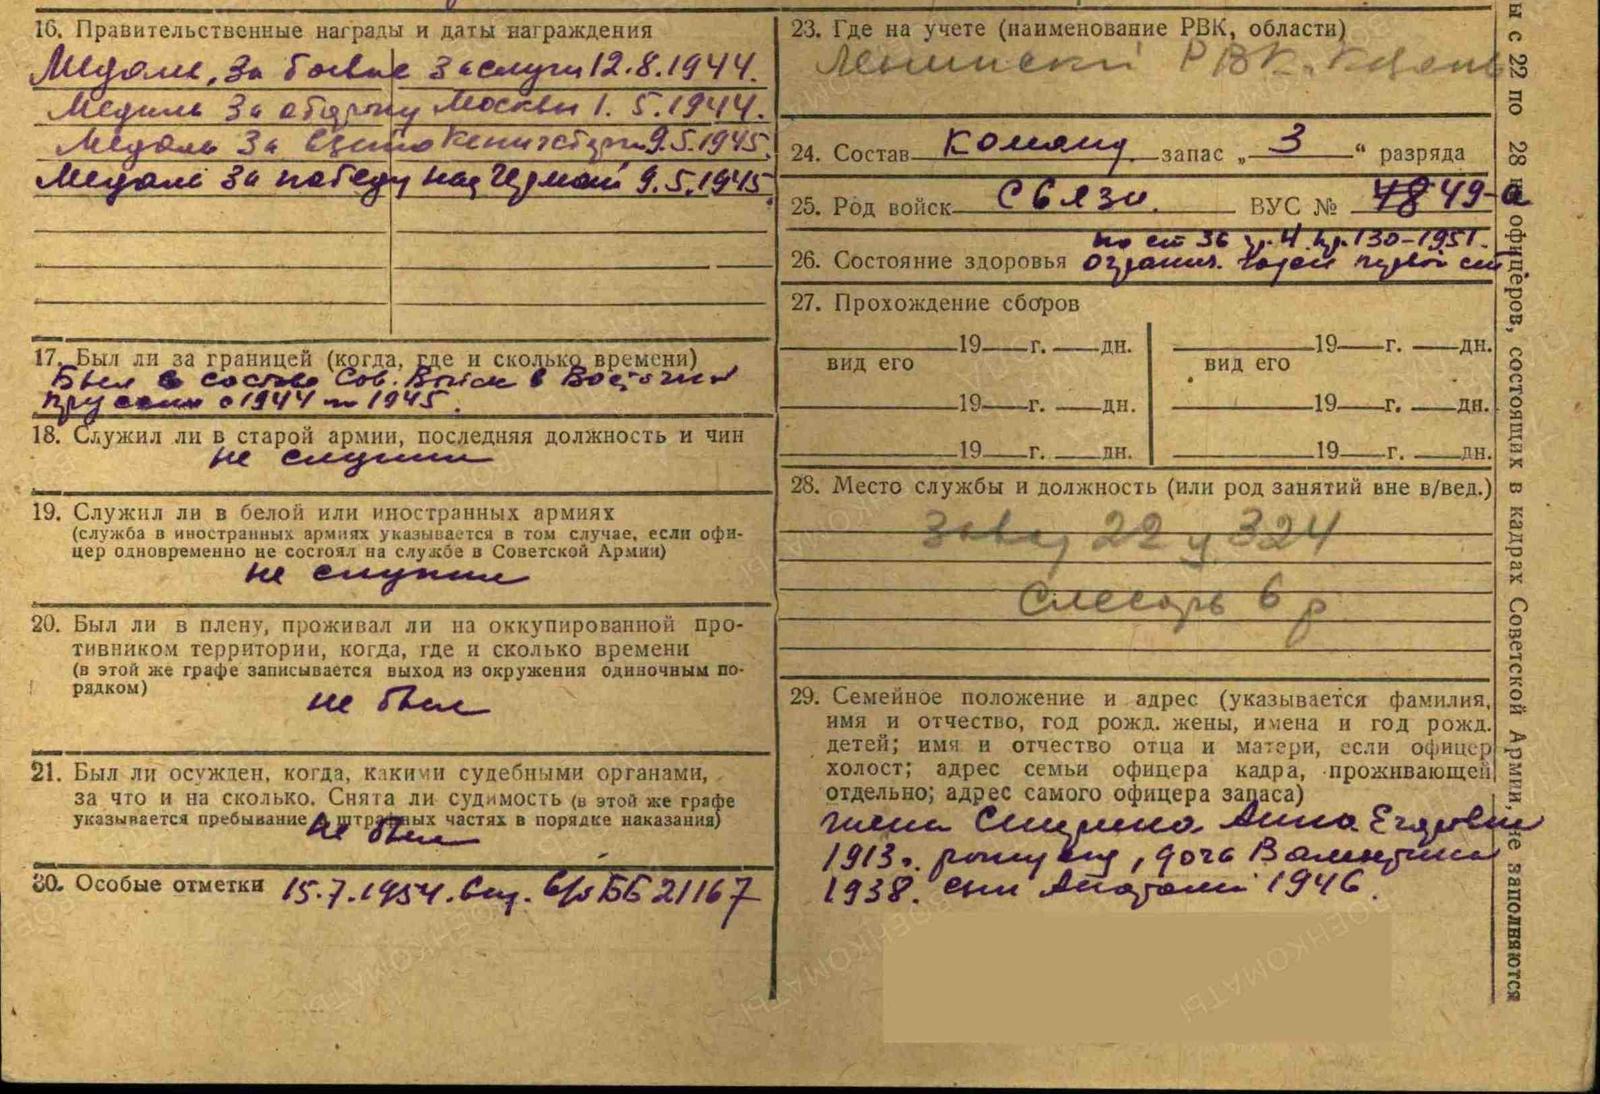 16. Правительственные награды и даты награждения
Медаль „За боевые заслуги 12.8.1944.
Медаль За оборону Москвы 1.5.1944.
Медаль За взятие Кенигсберга 9.5.1945.
Медаль За победу над Герман 9.5.1945.
17. Был ли за границей (когда, где и сколько времени)
Был в составе Сов. Войск в Восточной
Пруссии с 1944 по 1945.
18. Служил ли в старой армии, последняя должность и чин
не служил
19. Служил ли в белой или иностранных армиях
(служба в иностранных армиях указывается в том случае, если офи-
цер одновременно не состоял на службе в Советской Армии)
не служил
20. Был ли в плену, проживал ли на оккупированной про-
тивником территории, когда, где и сколько времени
(в этой же графе записывается выход из окружения одиночным по-
рядком)
не был
21. Был ли осужден, когда, какими судебными органами,
за что и на сколько. Снята ли судимость (в этой же графе
указывается пребывание в штрафных частях в порядке наказания)
не был
30. Особые отметки 15.7.1954. в/б ББ 21167
23. Где на учете (наименование РВК, области)
Ленинский РВК. Казань
24. Состав команд. запас „ 3 “ разряда
25. Род войск связи. ВУС № 4849-а
по ст 36 гр. 4 пр. 130-1951.
26. Состояние здоровья огранич. годен первой ст
27. Прохождение сборов
19 г. дн. 19 г. дн.
вид его вид его
19 г. дн. 19 г. дн.
19 г. дн. 19 г. дн.
28. Место службы и должность (или род занятий вне в/вед.)
Завод 22 ц 324
Слесарь 6 р
29. Семейное положение и адрес (указывается фамилия,
имя и отчество, год рожд. жены, имена и год рожд.
детей; имя и отчество отца и матери, если офицер
холост; адрес семьи офицера кадра, проживающей
отдельно; адрес самого офицера запаса)
жена Анна Егоровна
1913. рождения, дочь Валентина
1938. сын Анатолий 1946.
ы с 22 по 28 офицеров, состоящих в кадрах Советской Армии, не заполняются
ВОЕНКОМАТЫ